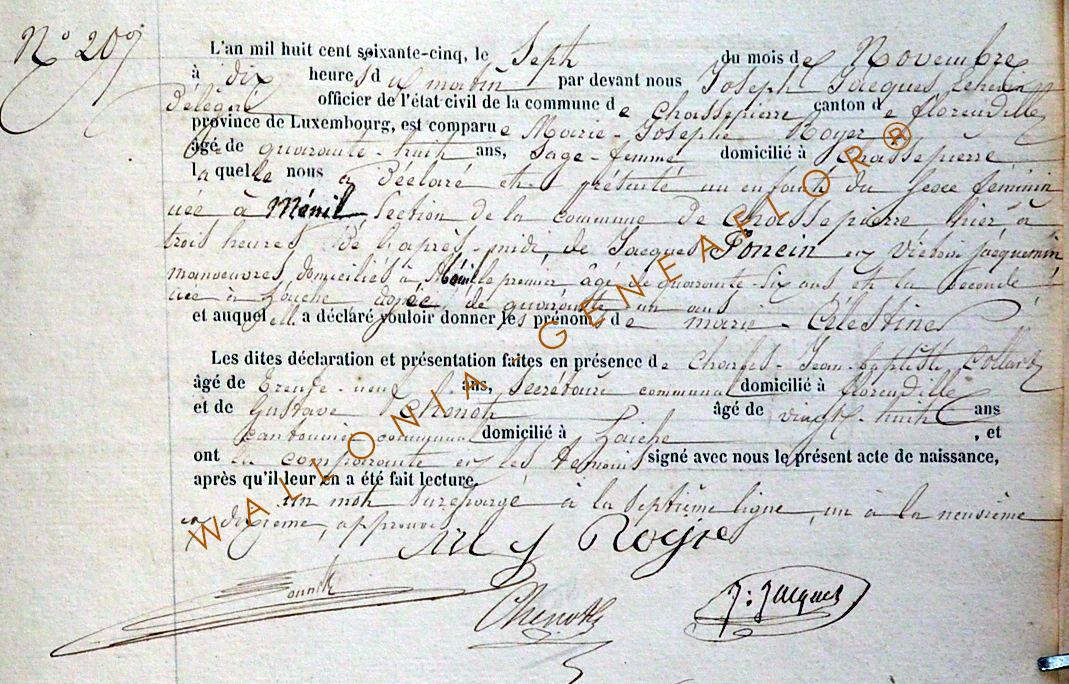 N° 20
L'an mil huit cent soixante-cinq, le Sept du mois de Novembre
à dix heures du matin par devant nous Joseph Jacques Echevin
Délégué officier de l'état civil de la commune de Chassepierre canton de florenville
province de Luxembourg, est comparue Marie-Josephe Royer
âgé de quarante-huit ans, Sage-femme domicilié à Chassepierre
laquelle nous a Déclaré et présenté un enfant du Sexe féminin
née à Ménil Section de la commune de Chassepierre hier à
trois heures de l'après-midi, de Jacques Poncin et Victoire Jacquemin
manoeuvres, domiciliés à Ménil le premier âgé de quarante-Six ans et la Seconde
née à Laiche agée de quarante un ans
et auquel elle a déclaré vouloir donner les prénoms de marie-Célestine
Les dites déclaration et présentation faites en présence de Charles-Jean-baptiste Collard
âgé de Trente-neuf ans, Secrétaire communal domicilié à florenville
et de Gustave Chenot âgé de vingt-huit ans
Cantonnier communal domicilié à Laiche , et
ont la comparante et les témoins signé avec nous le présent acte de naissance,
après qu'il leur en a été fait lecture.
un mot surchargé à la septième ligne, un à la neuvième
dixième, approuvés
M J Royer
Chenot
J: Jacques
WALLONIA-GENEAFLOR®